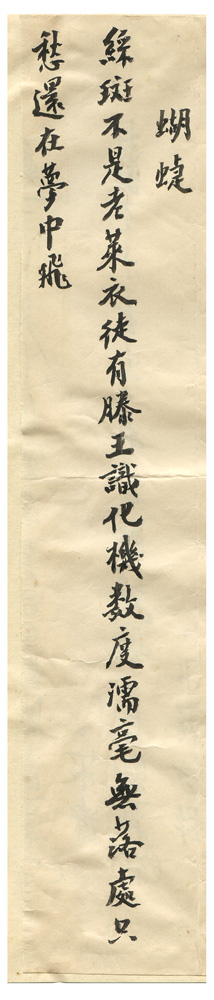 蝴蜨
綵斑不是老萊衣徒有滕王識化機數度濡毫無落處只
愁還在夢中飛